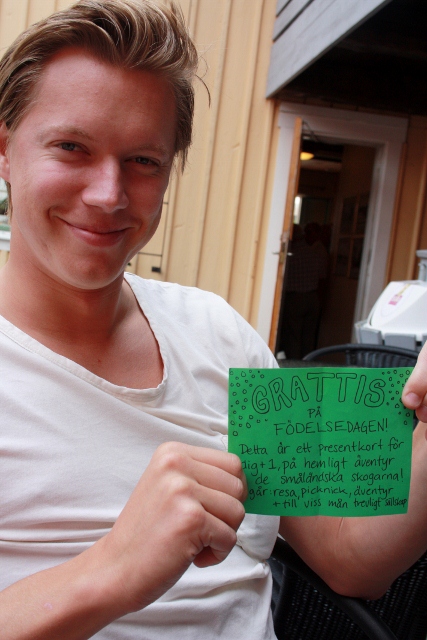 GRATTIS
PÅ
FÖDELSEDAGEN!
Detta är ett presentkort för
dig+1, på hemligt äventyr
de småländska skogarna!
går: resa, picknick, äventyr
+ till viss mån trevligt sällskap